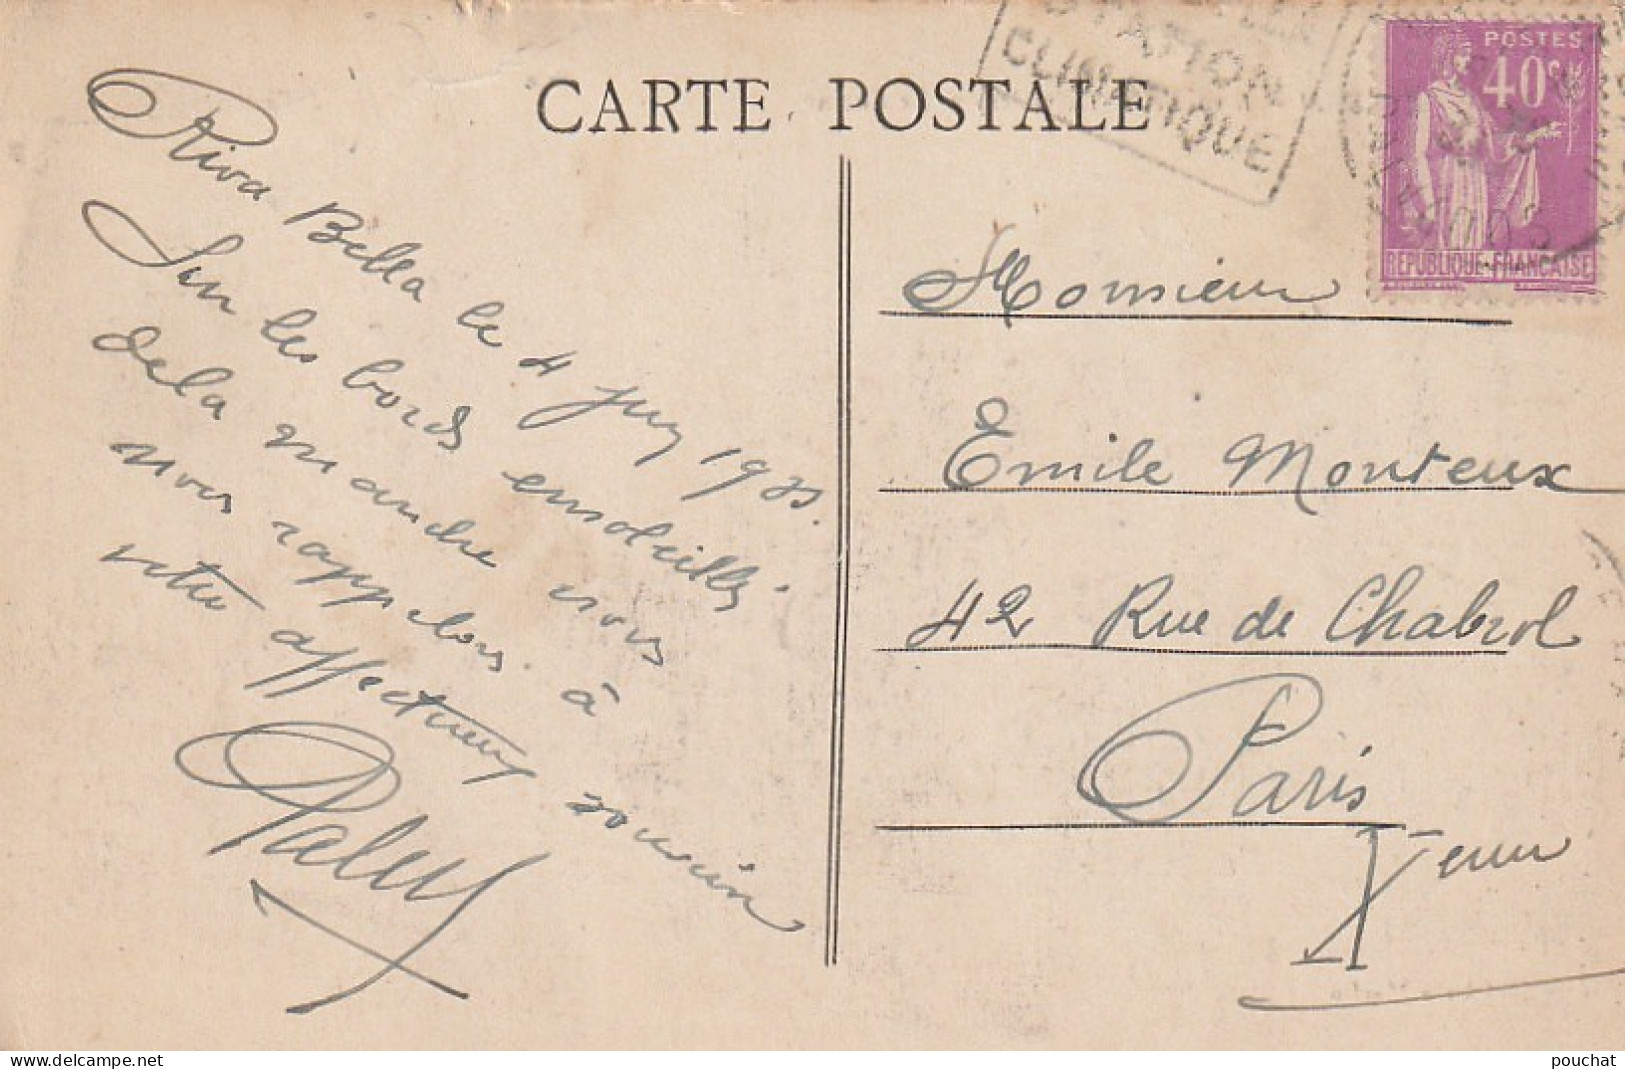 CARTE POSTALE
STATION
CLIMATIQUE
POSTES
40c
REPUBLIQUE-FRANCAISE
Riva Bella le 4 Juy 1933.
Sur les bords ensoleillés
de la manche nous
nous rappelons à
votre affectueux souvenir
Monsieur
Emile Monteux
42 Rue de Chabrol
Paris
Xeme
www.delcampe.net
pouchat